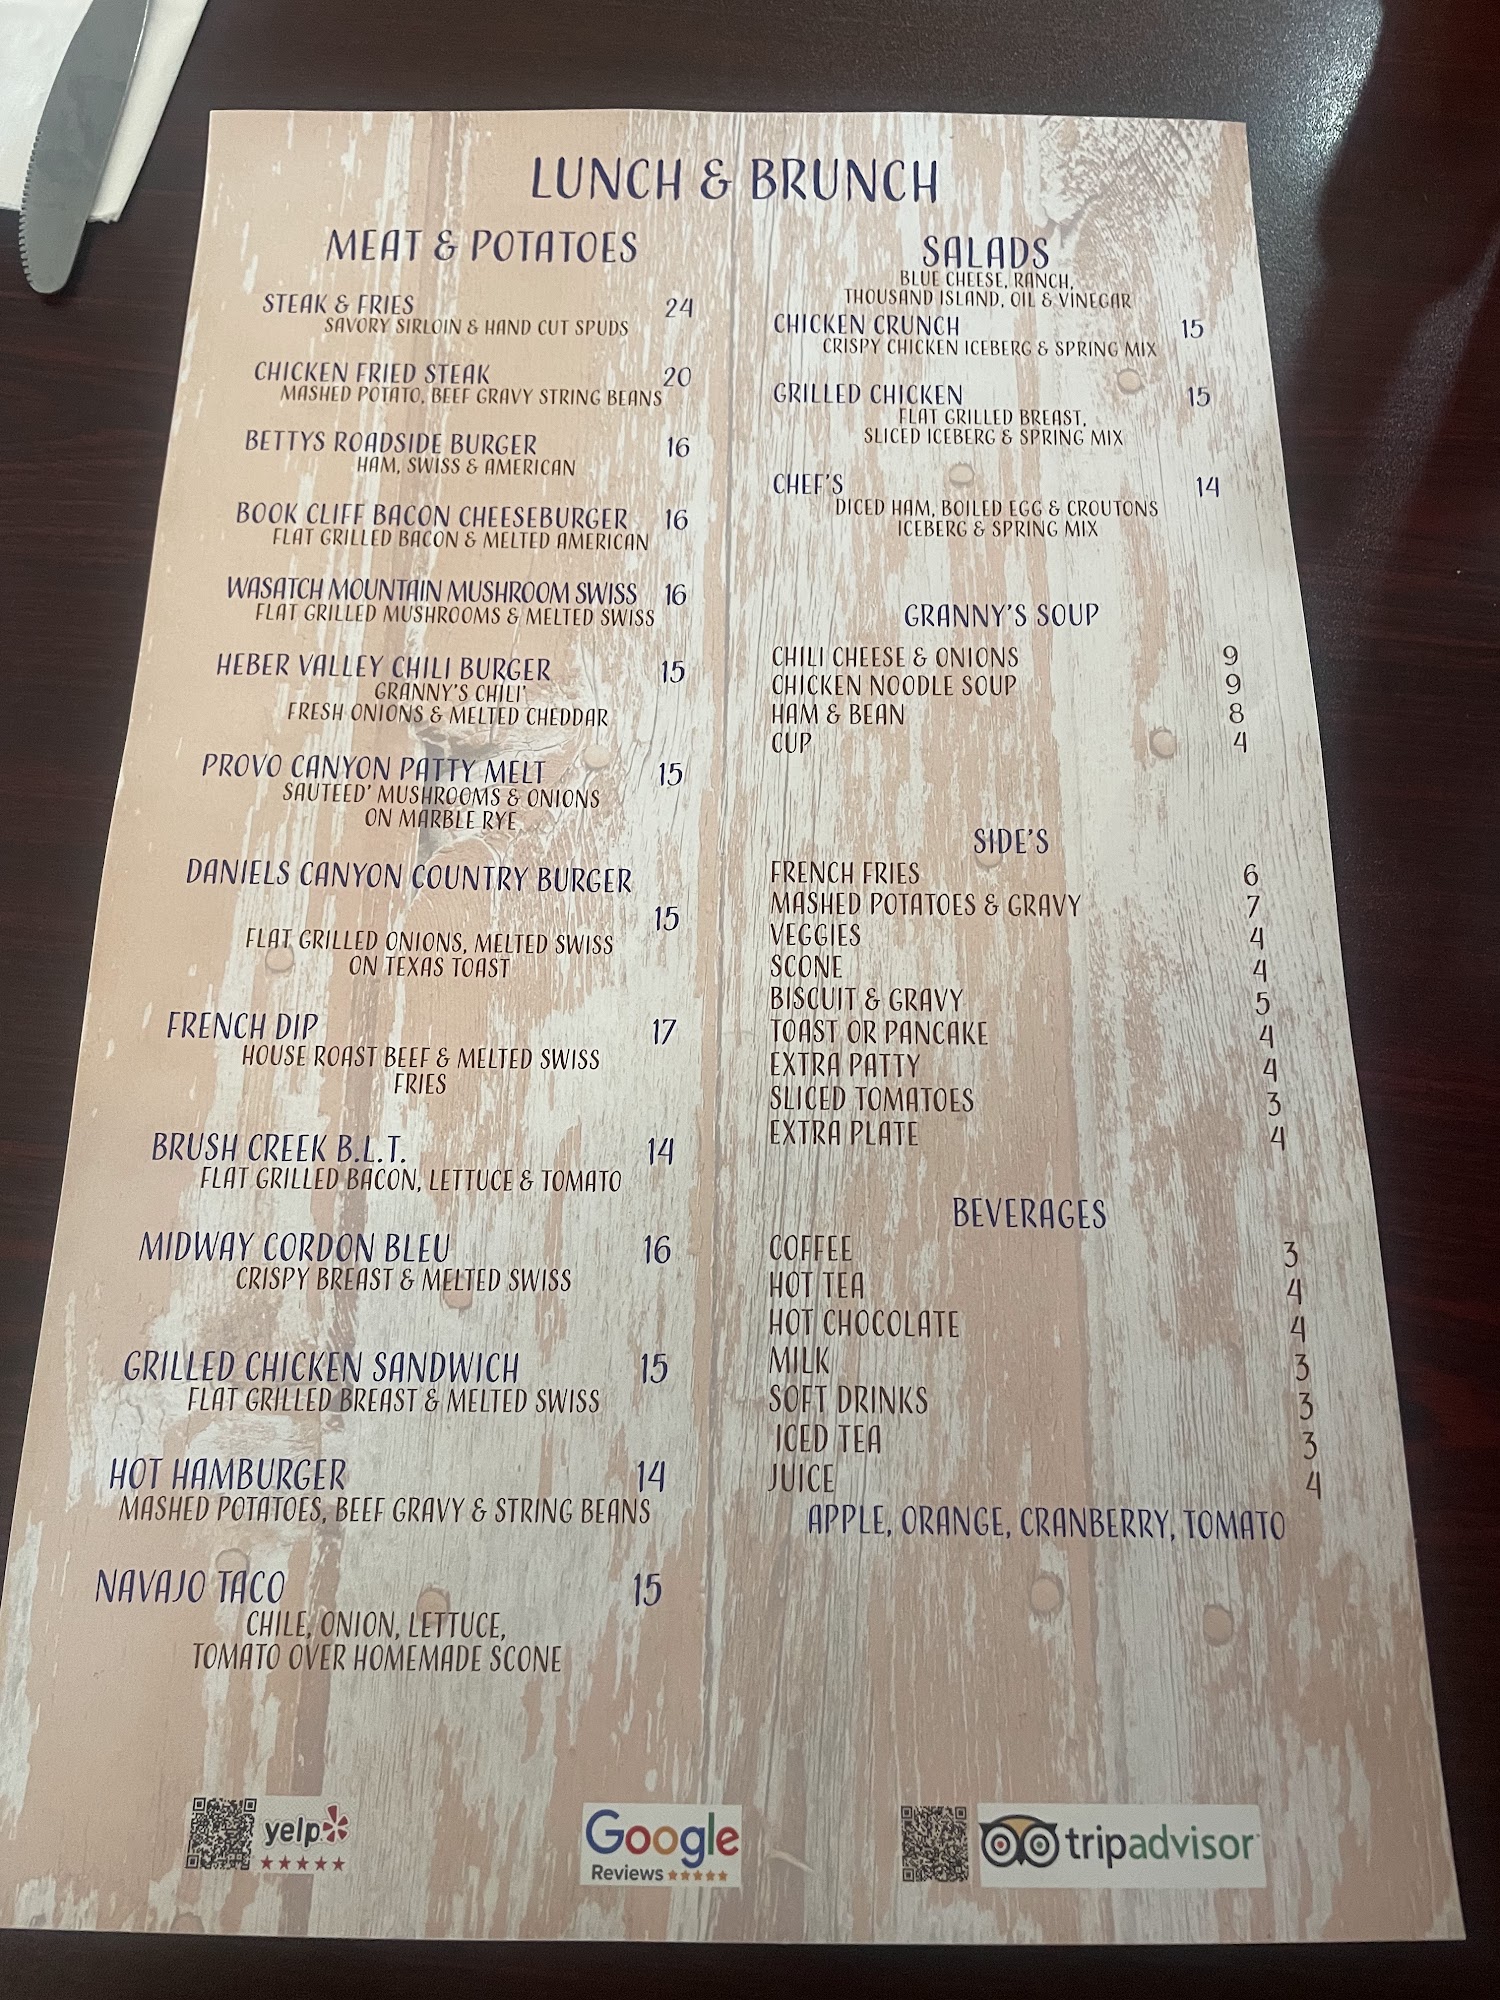 LUNCH & BRUNCH
MEAT & POTATOES
STEAK & FRIES 24
SAVORY SIRLOIN & HAND CUT SPUDS
CHICKEN FRIED STEAK 20
MASHED POTATO, BEEF GRAVY STRING BEANS
BETTYS ROADSIDE BURGER 16
HAM, SWISS & AMERICAN
BOOK CLIFF BACON CHEESEBURGER 16
FLAT GRILLED BACON & MELTED AMERICAN
WASATCH MOUNTAIN MUSHROOM SWISS 16
FLAT GRILLED MUSHROOMS & MELTED SWISS
HEBER VALLEY CHILI BURGER 15
GRANNY'S CHILI'
FRESH ONIONS & MELTED CHEDDAR
PROVO CANYON PATTY MELT 15
SAUTEED' MUSHROOMS & ONIONS
ON MARBLE RYE
DANIELS CANYON COUNTRY BURGER
15
FLAT GRILLED ONIONS, MELTED SWISS
ON TEXAS TOAST
FRENCH DIP 17
HOUSE ROAST BEEF & MELTED SWISS
FRIES
BRUSH CREEK B.L.T. 14
FLAT GRILLED BACON, LETTUCE & TOMATO
MIDWAY CORDON BLEU 16
CRISPY BREAST & MELTED SWISS
GRILLED CHICKEN SANDWICH 15
FLAT GRILLED BREAST & MELTED SWISS
HOT HAMBURGER 14
MASHED POTATOES, BEEF GRAVY & STRING BEANS
NAVAJO TACO 15
CHILE, ONION, LETTUCE,
TOMATO OVER HOMEMADE SCONE
SALADS
BLUE CHEESE, RANCH,
THOUSAND ISLAND, OIL & VINEGAR
CHICKEN CRUNCH 15
CRISPY CHICKEN ICEBERG & SPRING MIX
GRILLED CHICKEN 15
FLAT GRILLED BREAST,
SLICED ICEBERG & SPRING MIX
CHEF'S 14
DICED HAM, BOILED EGG & CROUTONS
ICEBERG & SPRING MIX
GRANNY'S SOUP
CHILI CHEESE & ONIONS 9
CHICKEN NOODLE SOUP 9
HAM & BEAN 8
CUP 4
SIDE'S
FRENCH FRIES 6
MASHED POTATOES & GRAVY 7
VEGGIES 4
SCONE 4
BISCUIT & GRAVY 5
TOAST OR PANCAKE 4
EXTRA PATTY 4
SLICED TOMATOES 3
EXTRA PLATE 4
BEVERAGES
COFFEE 3
HOT TEA 4
HOT CHOCOLATE 4
MILK 3
SOFT DRINKS 3
ICED TEA 3
JUICE 4
APPLE, ORANGE, CRANBERRY, TOMATO
yelp
Google
Reviews
tripadvisor